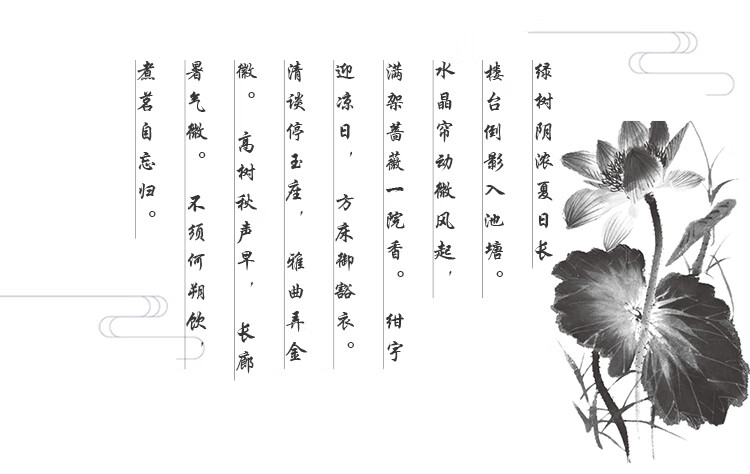 绿树阴浓夏日长
楼台倒影入池塘。
水晶帘动微风起，
满架蔷薇一院香。 绀宇
迎凉日， 方床御豁衣。
清谈停玉座， 雅曲弄金
徽。 高树秋声早， 长廊
暑气微。 不须何朔饮，
煮茗自忘归。